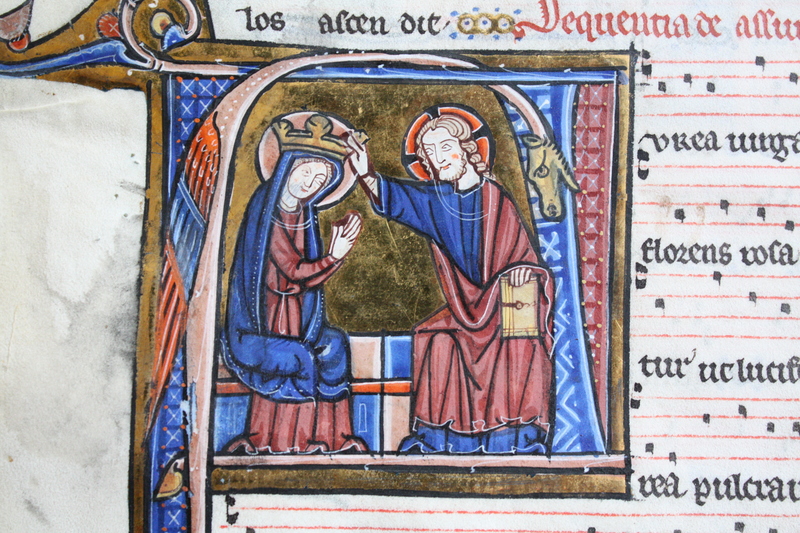 los ascen dit. Sequentia de assum
urea uirga
florens rosa
tur ut lucif
rea pulcra